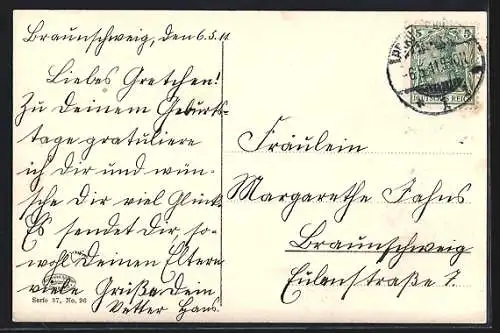 Braunschweig, den 6.5.11
Liebes Gretchen!
Zu deinem Geburts-
tage gratuliere
ich Dir und wün-
sche Dir viel Glück.
Es sendet Dir, so-
wohl Deinen Eltern
viele Grüße Dein
Vetter Hans.
Serie 37, No. 96
5 5
DEUTSCHES REICH
Fräulein
Margarethe Fahns
Braunschweig
Eulenstraße 7.